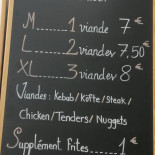 M 1 viande 7 €
L 2 viandes 7,50 €
XL 3 viandes 8 €
Viandes: Kebab/Köfte/Steak/
Chicken/Tenders/Nuggets
Supplément frites 1 €